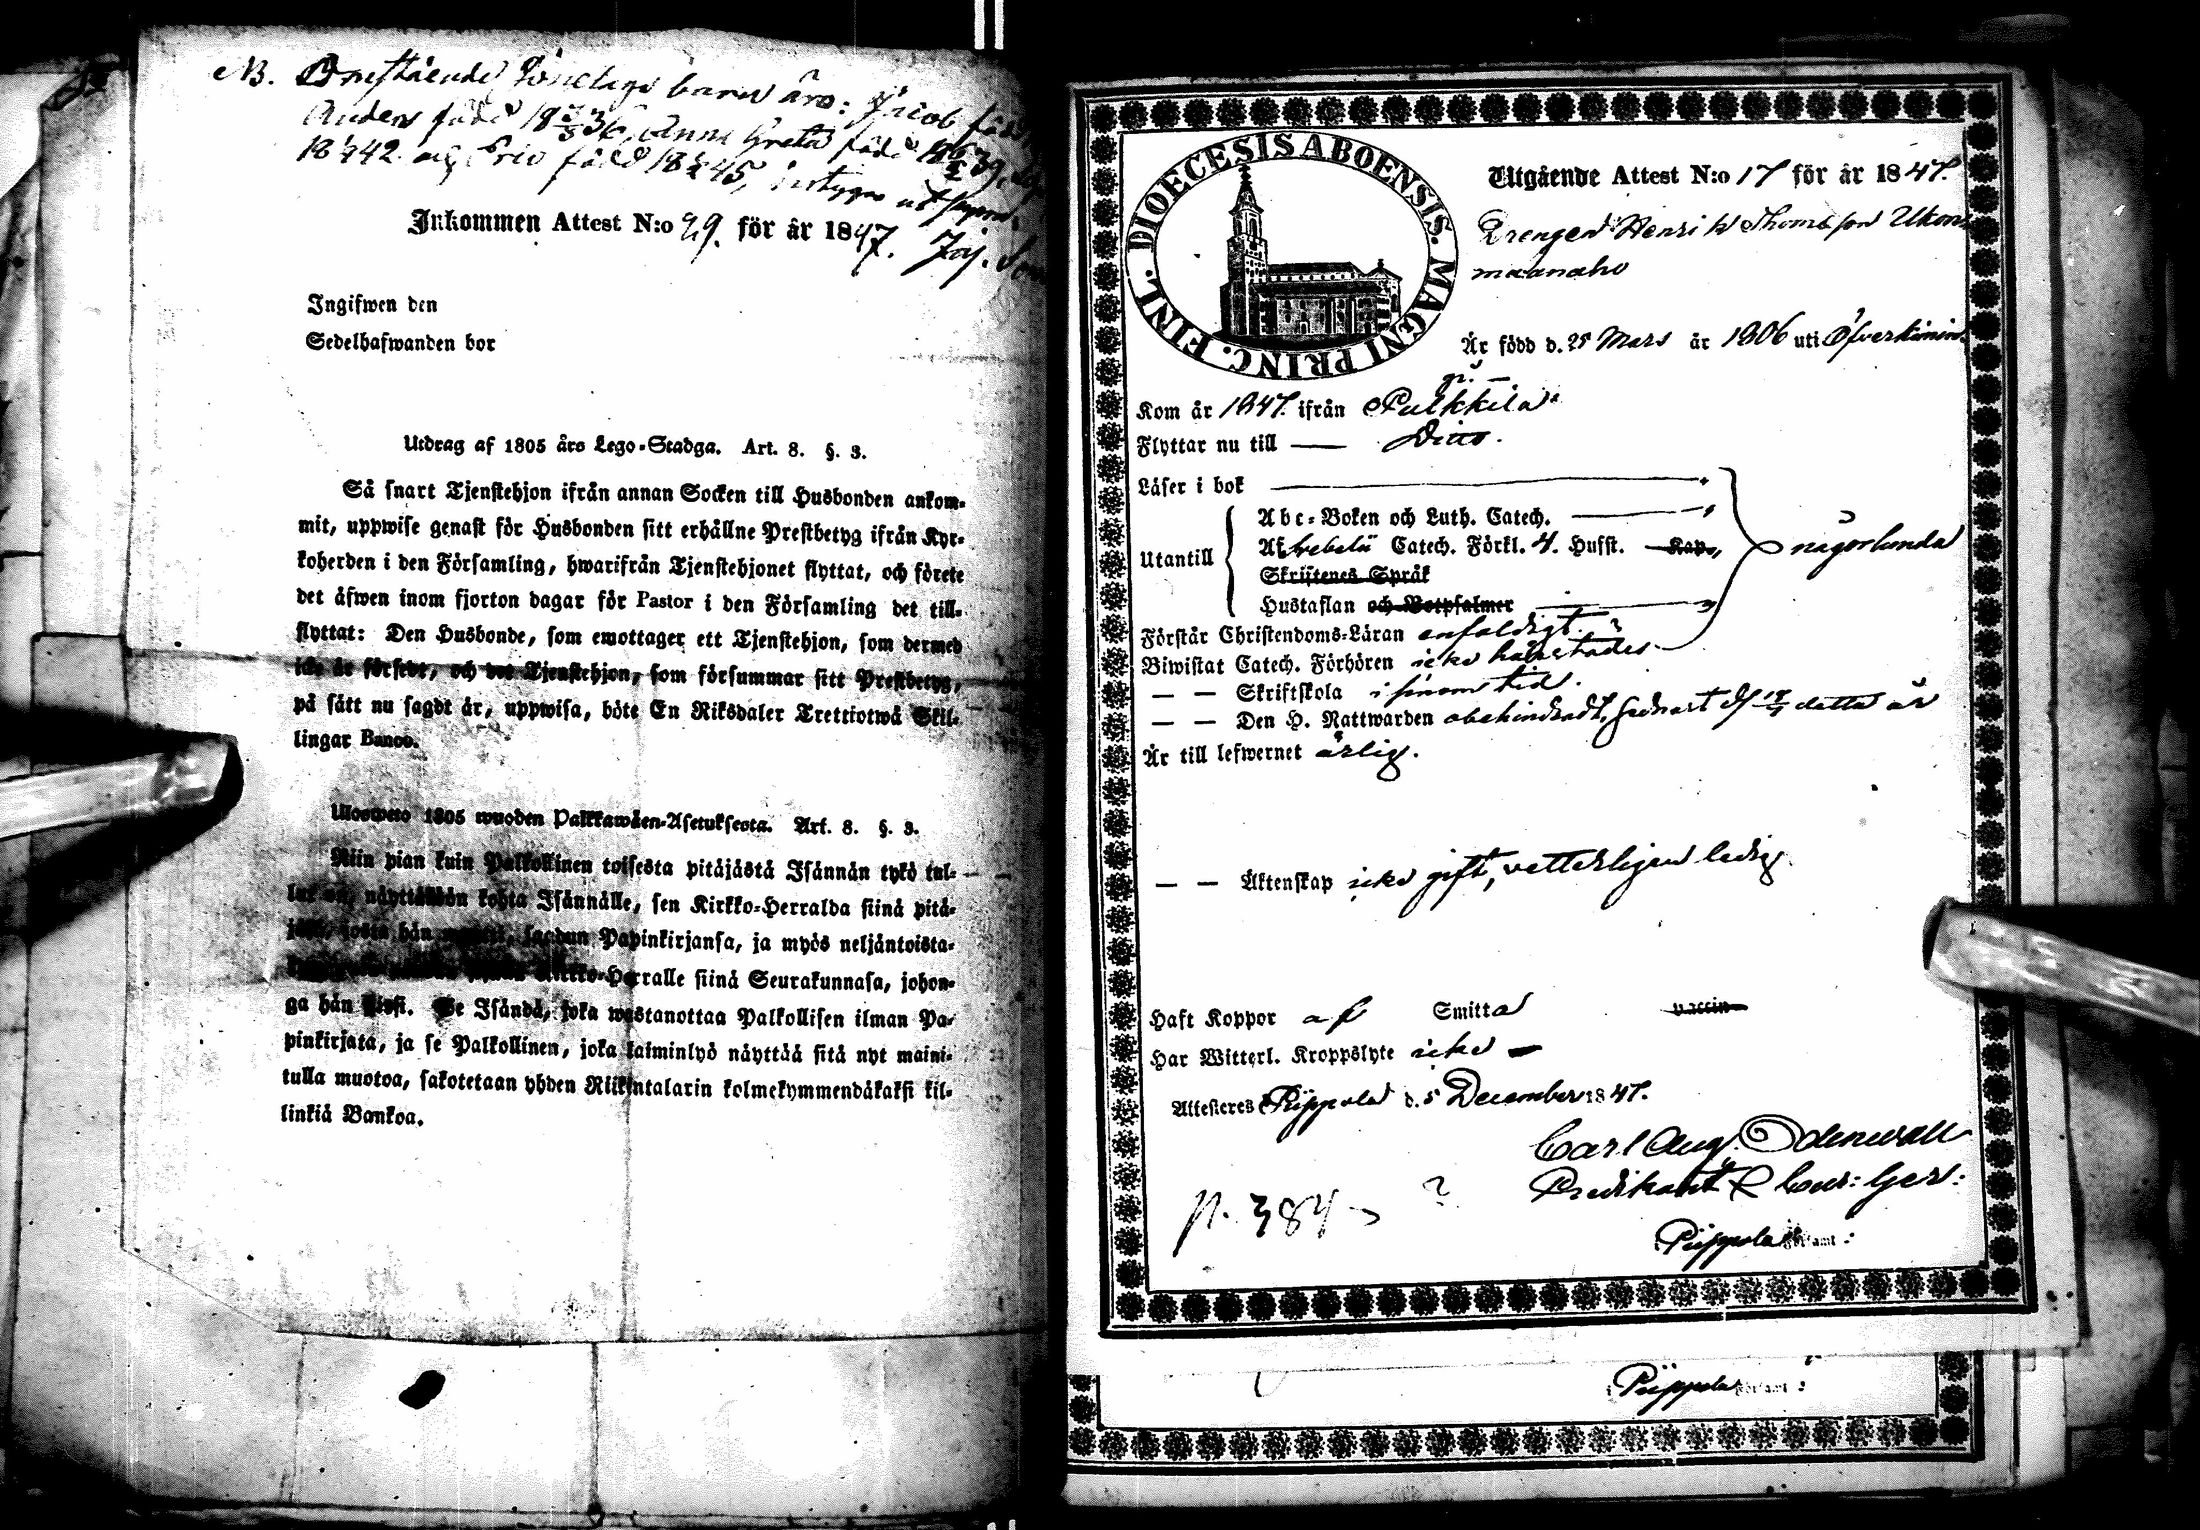 NB. Omstående barn äro: Jacob född
Anders född 18 36, Anna Greta född 39,
1842 och Eric född 1845, intygas ut supra.
Inkommen Attest N:o 99. för år 1847.
Ingifwen den
Sedelhafwanden bor
Utdrag af 1805 års Lego-Stadga. Art. 8. §. 3.
Så snart Tjenstehjon ifrån annan Socken till Husbonden ankom-
mit, uppwise genast för Husbonden sitt erhållne Prestbetyg ifrån Kyr-
koherden i den Församling, hwarifrån Tjenstehjonet flyttat, och förete
det äfwen inom fjorton dagar för Pastor i den Församling det till-
flyttat: Den Husbonde, som emottager ett Tjenstehjon, som dermed
icke är försedt, och det Tjenstehjon, som försummar sitt Prestbetyg,
på sätt nu sagdt är, uppwisa, böte En Riksdaler Trettiotwå Skil-
lingar Banco.
Ulosweto 1805 wuoden Palkkawäen-Asetuksesta. Art. 8. §. 3.
Niin pian kuin Palkollinen toisesta pitäjästä Isännän tykö tul-
lut on, näyttäköön kohta Isännälle, sen Kirkko-Herralda siinä pitä-
jäsä, josta hän saadun Papinkirjansa, ja myös neljäntoista-
Kirkko-Herralle siinä Seurakunnasa, johon-
ga hän siirsi. Se Isändä, joka wastanottaa Palkollisen ilman Pa-
pinkirjata, ja se Palkollinen, joka laiminlyö näyttää sitä nyt maini-
tulla muotoa, sakotetaan yhden Riikintalarin kolmekymmendäkaksi kil-
linkiä Bankoa.
DIOECESIS ABOENSIS. MAGNI PRINC. FINL.
Utgående Attest N:o 17 för år 1847.
Drengen Henrik Thomasson Ukon-
maanaho
Är född d. 25 Mars år 1806 uti Öfverkimin
Kom år 1847. ifrån Pulkkila
Flyttar nu till — Ditto.
Läser i bok
Utantill
Abc-Boken och Luth. Catech.
Af Svebelii Catech. Förkl. 4. Hufst. Kap.
Skriftenes Språk
Hustaflan och Botpsalmer
någorlunda
Förstår Christendoms-Läran enfaldigt.
Biwistat Catech. Förhören icke härstädes
— — Skriftskola i sinom tid.
— — Den H. Nattwarden obehindradt, sednast d. detta år
Är till lefwernet ärlig.
— — Äktenskap icke gift, vetterligen ledig.
Haft Koppor af Smitta vaccin
Har Witterl. Kroppslyte icke —
Attesteres Piippola d. 5 December 1847.
Carl Aug. Odenwall
Predikant & Cur: Ger:
p. 384 ?
Piippola Församl:
Piippola Församl: